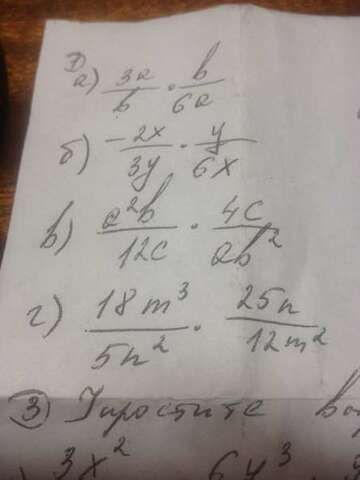 1)
а) 3a/b · b/6a
б) -2x/3y · y/6x
в) a²b/12c · 4c/ab²
г) 18m³/5n² · 25n/12m²
3) Упростите
3x² 6y³